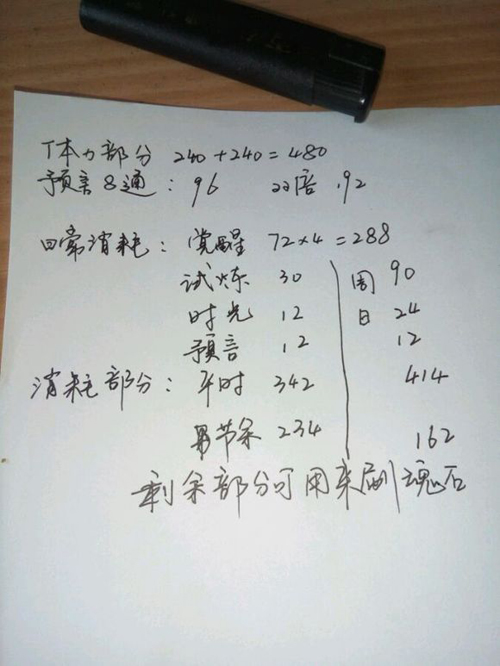 体力部分 240+240=480
预言8通: 96 双倍 192
日常消耗: 觉醒 72×4=288
试炼 30 周 90
时光 12 日 24
预言 12 12
消耗部分: 平时 342 414
节余 234 162
剩余部分可用来刷魂石